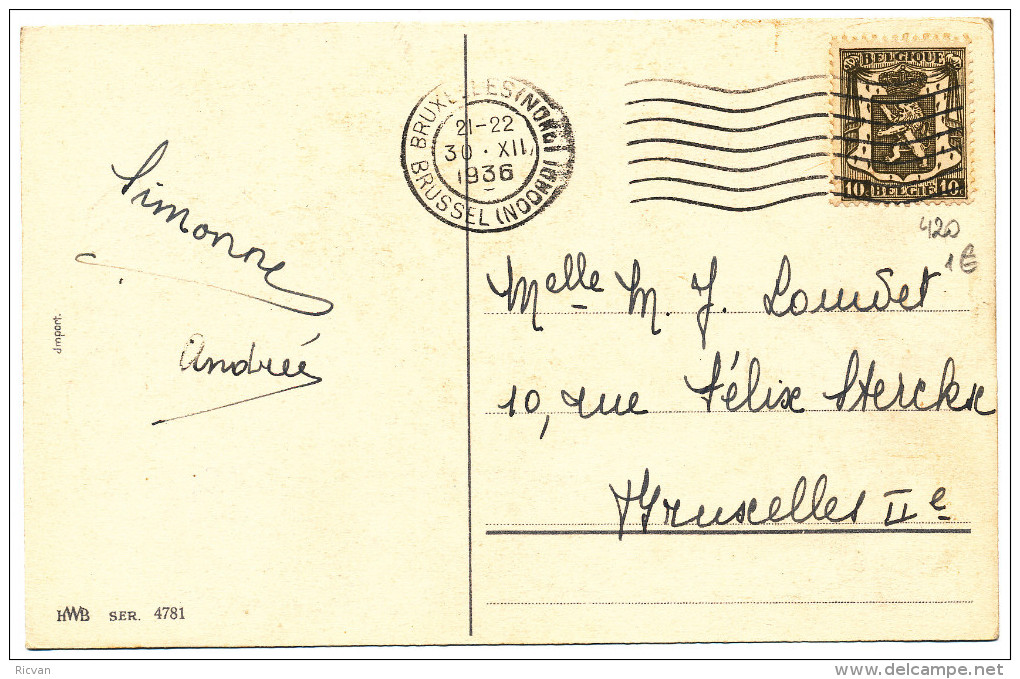 BRUXELLES (NORD)
21-22
30·XII
1936
BRUSSEL (NOORD)
BELGIQUE
10 BELGIË 10c
420
1€
Simonne
Andrée
Import.
Melle M. J. Louvet
10, rue Félix Sterckx
Bruxelles IIe
HWB SER. 4781
Ricvan
www.delcampe.net